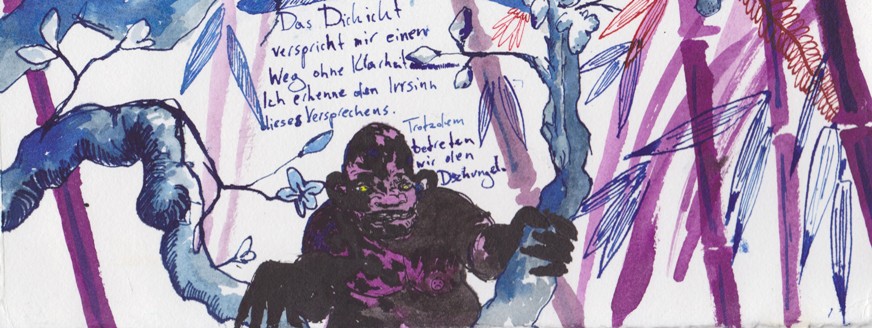 Das Dickicht
verspricht mir einen
Weg ohne Klarheit
Ich erkenne den Irrsinn
dieses Versprechens.
Trotzdem
betreten
wir den
Dschungel.